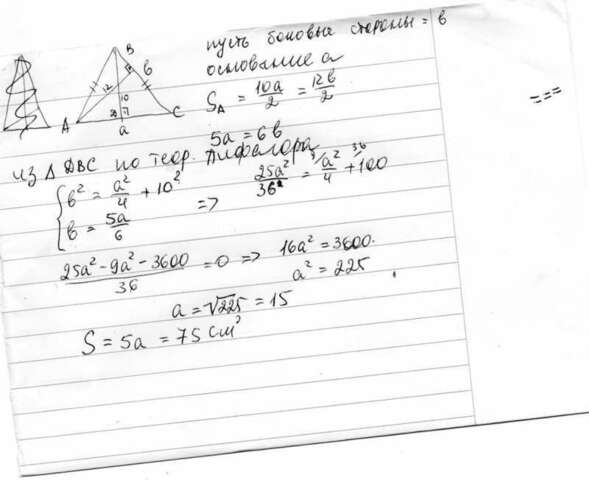 пусть боковые стороны = b
основание a
S_Δ = 10a/2 = 12b/2
5a = 6b
B
b
12
10
A
a
C
из Δ DBC по теор. Пифагора
{ b² = a²/4 + 10²
b = 5a/6
=> 25a²/36 = a²/4 + 100
(25a² - 9a² - 3600)/36 = 0 => 16a² = 3600.
a² = 225
a = √225 = 15
S = 5a = 75 см²